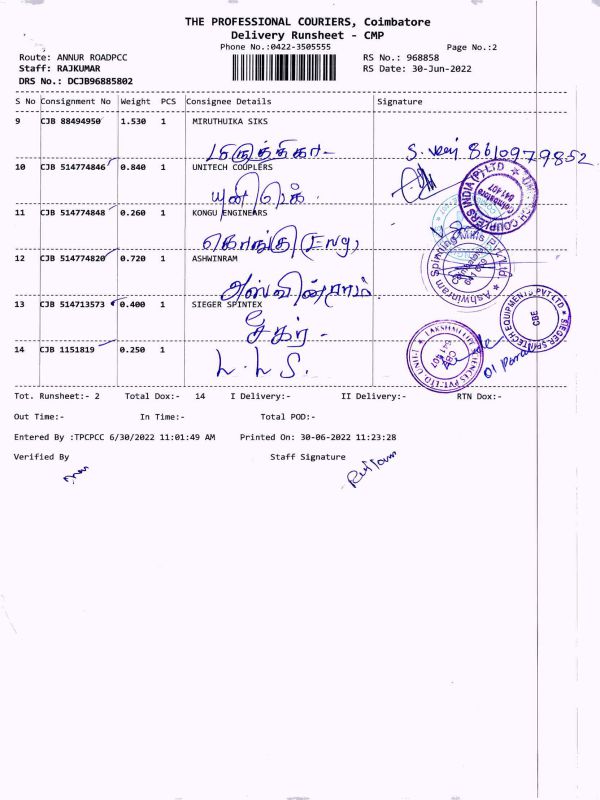 THE PROFESSIONAL COURIERS, Coimbatore
Delivery Runsheet - CMP
Phone No.:0422-3505555 Page No.:2
Route: ANNUR ROADPCC RS No.: 968858
Staff: RAJKUMAR RS Date: 30-Jun-2022
DRS No.: DCJB96885802
S No Consignment No Weight PCS Consignee Details Signature
9 CJB 88494950 1.530 1 MIRUTHUIKA SIKS
மிருத்திகா- 8610979852
10 CJB 514774846 0.840 1 UNITECH COUPLERS
UNITECH COUPLERS INDIA (P) LTD Coimbatore 641 407
யுனிடெக்
11 CJB 514774848 0.260 1 KONGU ENGINEERS
கொங்கு (Eng)
12 CJB 514774820 0.720 1 ASHWINRAM
Ashwinram Spinning Mills P Ltd Coimbatore
அஸ்வின்ராம்.
13 CJB 514713573 0.400 1 SIEGER SPINTEX
SIEGER SPINTECH EQUIPMENTS PVT LTD CBE
சேகர் -
14 CJB 1151819 0.250 1
L. L S.
LAKSHMI LIFE SCIENCES PVT. LTD. UNIT-1 CBE 641 407
Tot. Runsheet:- 2 Total Dox:- 14 I Delivery:- II Delivery:- RTN Dox:-
Out Time:- In Time:- Total POD:-
Entered By :TPCPCC 6/30/2022 11:01:49 AM Printed On: 30-06-2022 11:23:28
Verified By Staff Signature